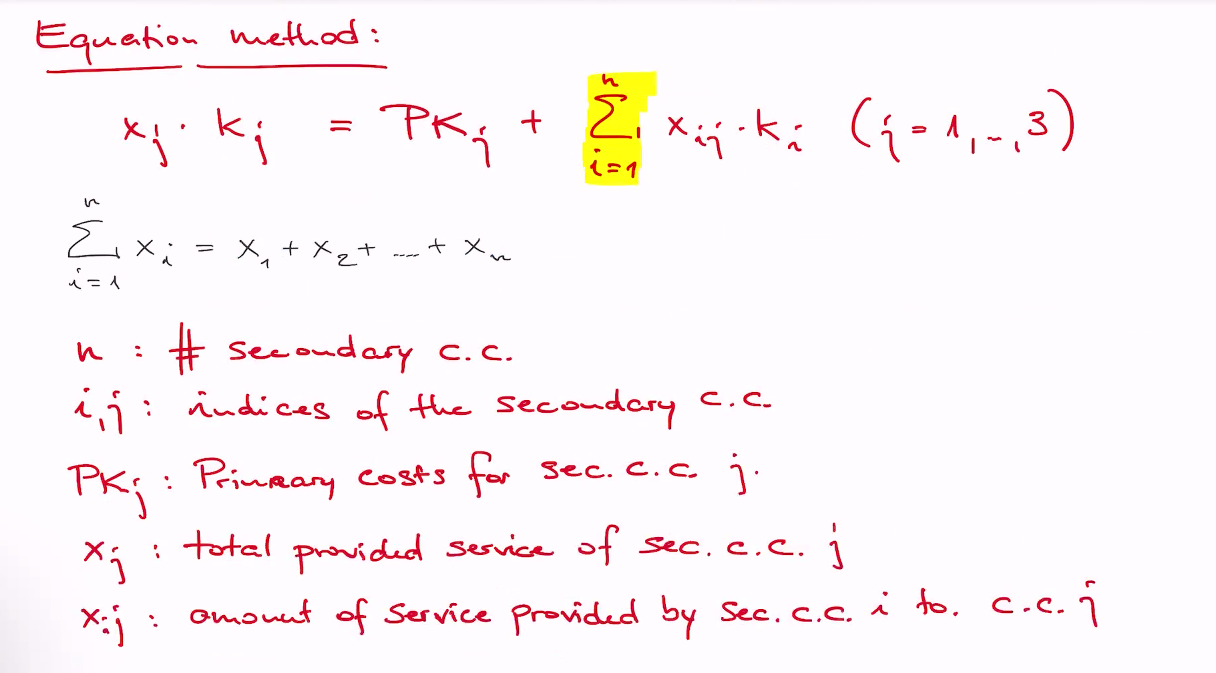 Equation method:
xj · kj = PKj + n∑i=1 xij · ki (j = 1, ..., 3)
n∑i=1 xi = x1 + x2 + .... + xn
n : # secondary c.c.
i,j : indices of the secondary c.c.
PKj : Primary costs for sec. c.c. j.
xj : total provided service of sec. c.c. j
xij : amount of service provided by sec. c.c. i to. c.c. j